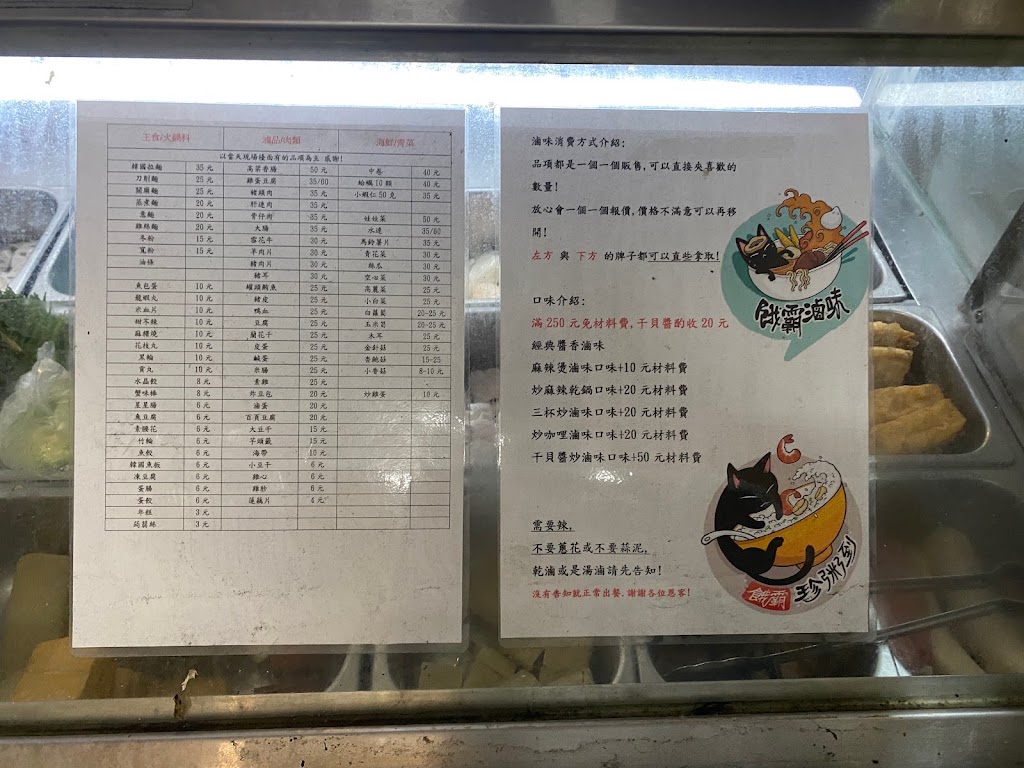 主食/火鍋料 滷品/肉類 海鮮/青菜
以當天現場檯面有的品項為主 感謝!
韓國拉麵 35 元 高粱香腸 50 元 中卷 40 元
刀削麵 25 元 雞蛋豆腐 35/60 蛤蠣 10 顆 40 元
關廟麵 25 元 豬頭肉 35 元 小蝦仁 50 克 35 元
蒸煮麵 20 元 肝連肉 35 元
意麵 20 元 骨仔肉 35 元 娃娃菜 50 元
雞絲麵 20 元 大腸 35 元 水蓮 35/60
冬粉 15 元 雪花牛 30 元 馬鈴薯片 35 元
寬粉 15 元 羊肉片 30 元 青花菜 30 元
油條 豬肉片 30 元 絲瓜 30 元
豬耳 30 元 空心菜 30 元
魚包蛋 10 元 罐頭鮑魚 25 元 高麗菜 25 元
龍蝦丸 10 元 豬皮 25 元 小白菜 25 元
米血片 10 元 鴨血 25 元 白蘿蔔 20-25 元
甜不辣 10 元 豆腐 25 元 玉米筍 20-25 元
麻糬燒 10 元 蘭花干 25 元 木耳 25 元
花枝丸 10 元 皮蛋 25 元 金針菇 25 元
黑輪 10 元 鹹蛋 25 元 杏鮑菇 15-25
貢丸 10 元 米腸 25 元 小香菇 8-10 元
水晶餃 8 元 素雞 25 元
蟹味棒 8 元 炸豆包 20 元 炒雞蛋 10 元
星星腸 6 元 滷蛋 20 元
魚豆腐 6 元 百頁豆腐 20 元
素腰花 6 元 大豆干 15 元
竹輪 6 元 芋頭籤 15 元
魚餃 6 元 海帶 10 元
韓國魚板 6 元 小豆干 6 元
凍豆腐 6 元 雞心 6 元
蛋腸 6 元 雞胗 6 元
蛋餃 6 元 蓮藕片 4 元
年糕 3 元
蒟蒻絲 3 元
滷味消費方式介紹:
品項都是一個一個販售,可以直接夾喜歡的
數量!
放心會一個一個報價,價格不滿意可以再移
開!
左方 與 下方 的牌子都可以直些拿取!
餓霸滷味
口味介紹:
滿 250 元免材料費,干貝醬酌收 20 元
經典醬香滷味
麻辣燙滷味口味+10 元材料費
炒麻辣乾鍋口味+20 元材料費
三杯炒滷味口味+20 元材料費
炒咖哩滷味口味+20 元材料費
干貝醬炒滷味口味+50 元材料費
需要辣,
不要蔥花或不要蒜泥,
乾滷或是湯滷請先告知!
沒有告知就正常出餐,謝謝各位恩客!
餓霸 珍粥到